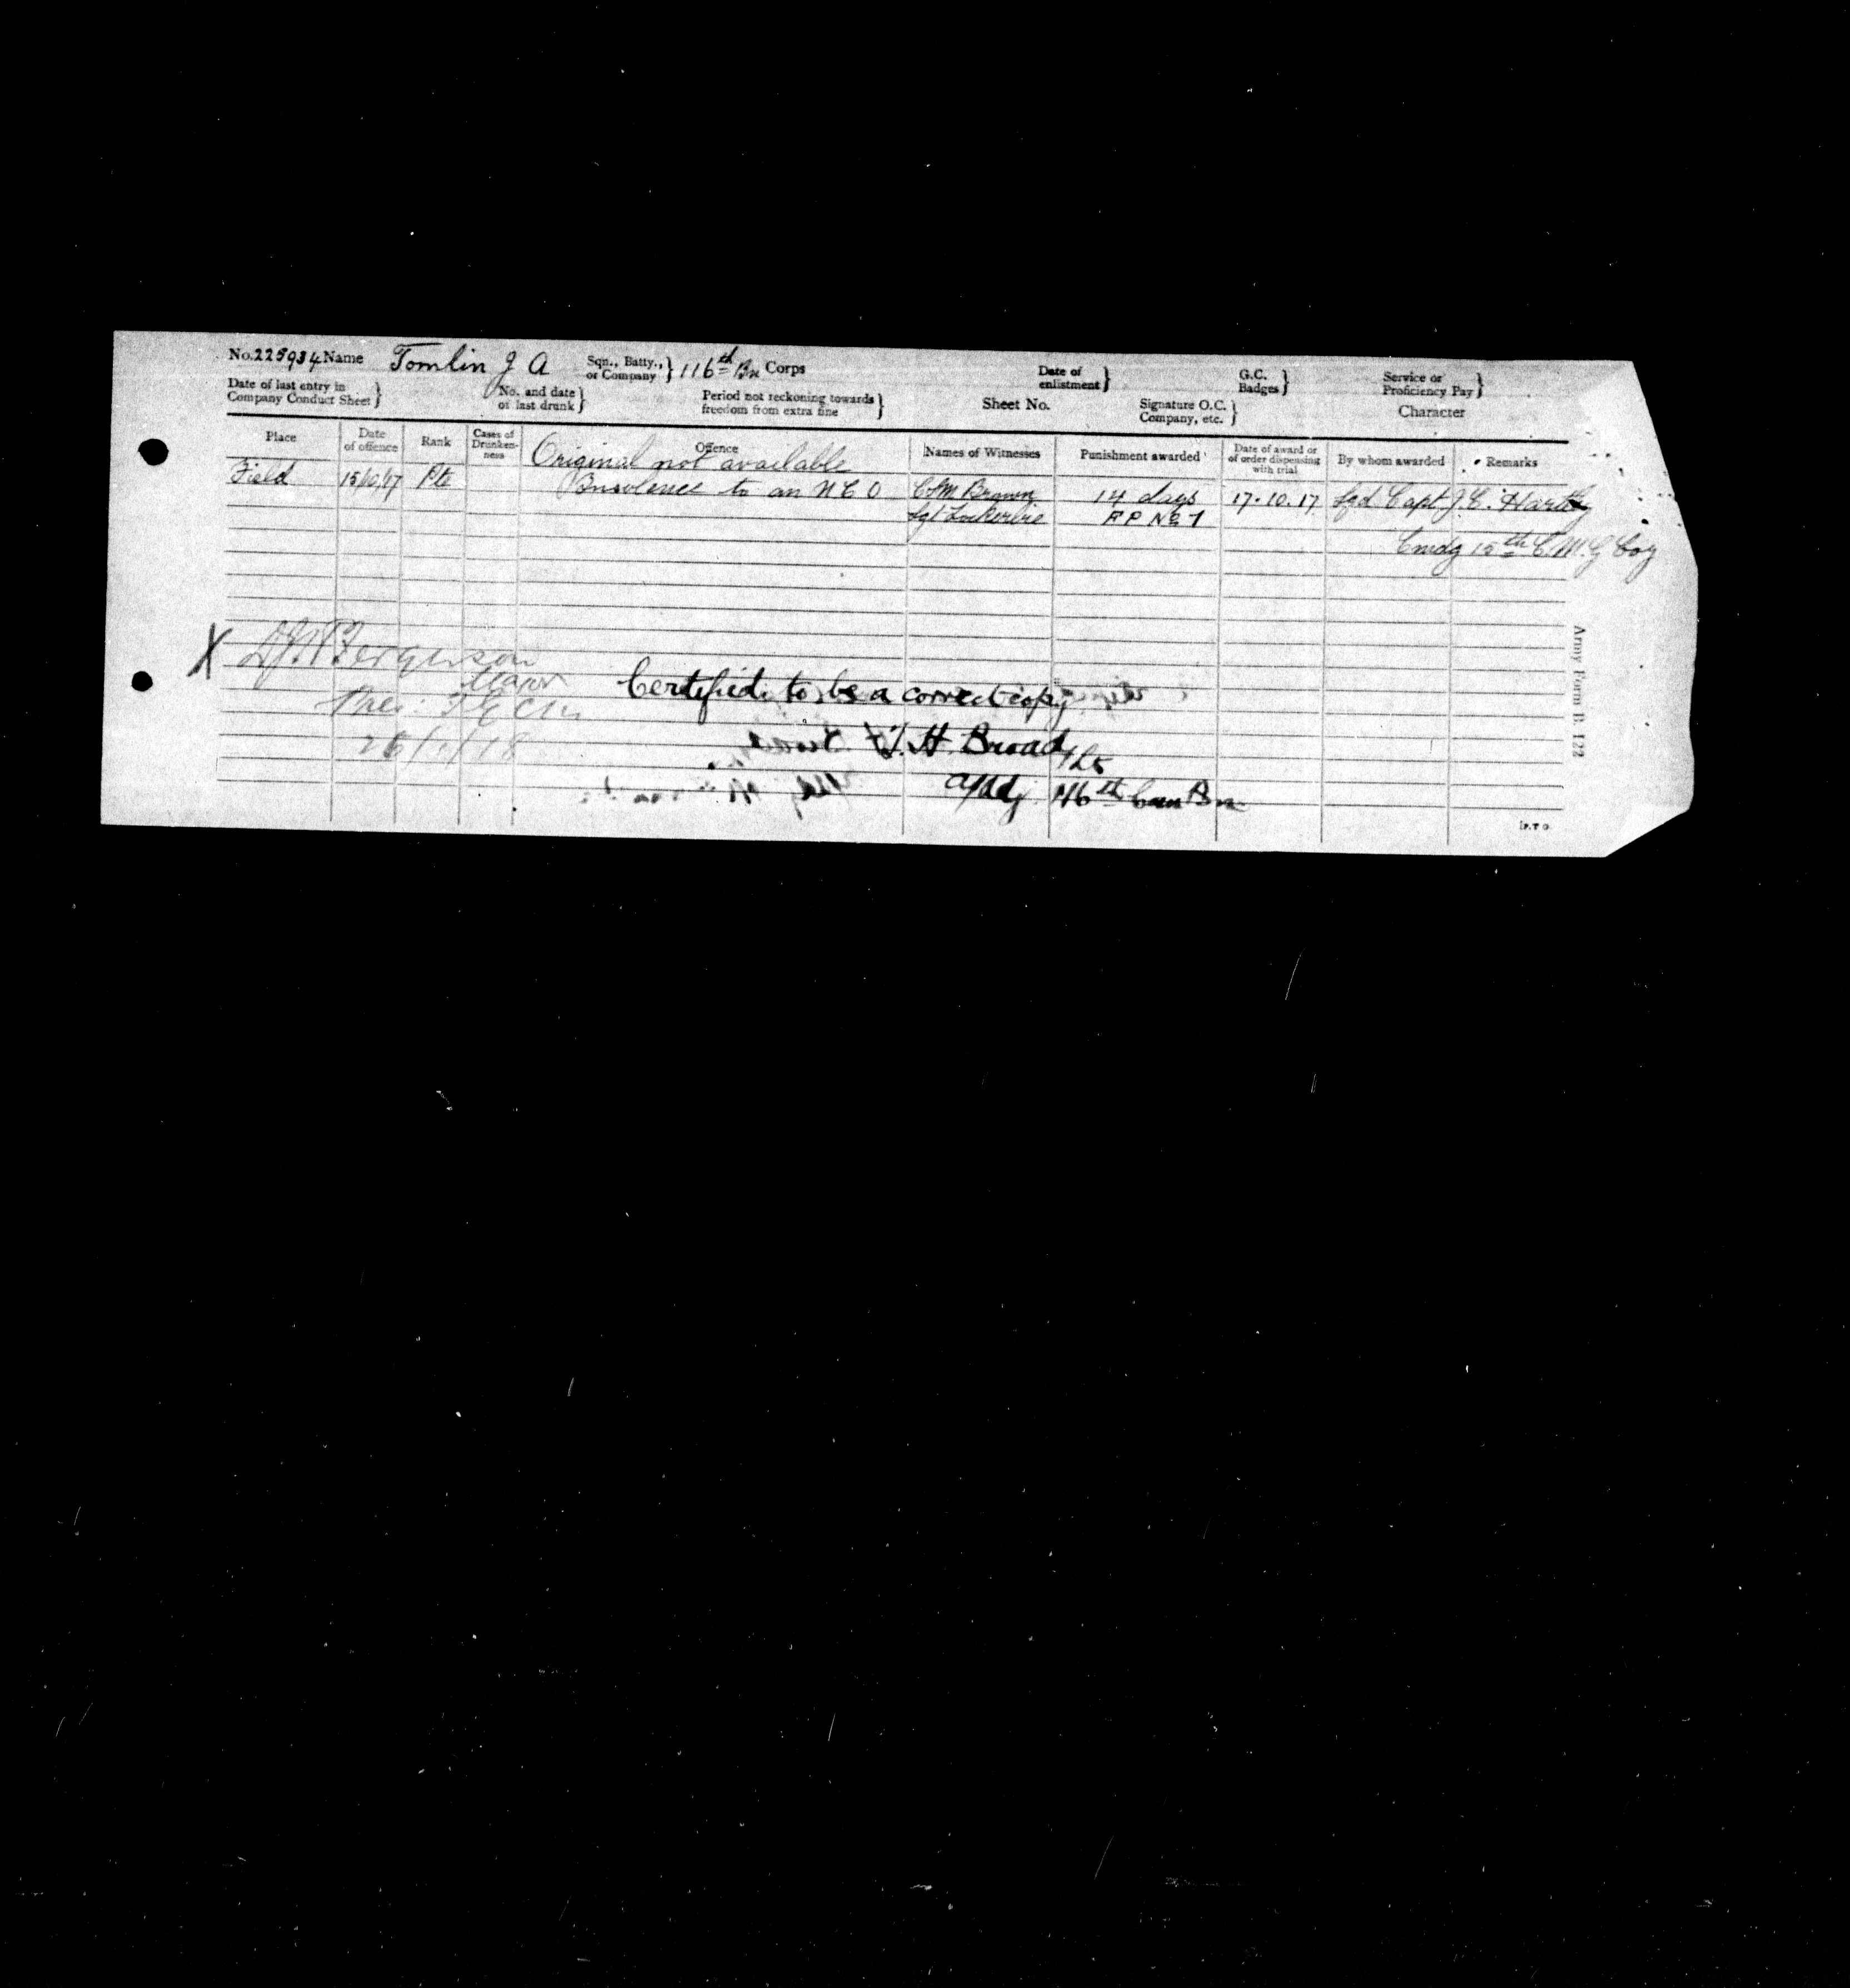 No. 225934 Name Tomlin J A Sqn., Batty., or Company } 116th Bn Corps Date of enlistment } G.C. Badges } Service or Proficiency Pay }
Date of last entry in Company Conduct Sheet } No. and date of last drunk } Period not reckoning towards freedom from extra fine } Sheet No. Signature O.C. Company, etc. } Character
Place Date of offence Rank Cases of Drunkenness Offence Names of Witnesses Punishment awarded Date of award or of order dispensing with trial By whom awarded Remarks
Original not available
Field 15/10/17 Pte Insolence to an N C O CSM Brown 14 days 17.10.17 Sgd Capt J. E. Hartley
Sgt Lockerbie F P No 1
Cmdg 15th C. M. G Coy
X Ferguson
Major
Certified to be a correct copy
Pres:
26/1/18 H. Broad Lt
A/Adj 116th Can Bn
Army Form B. 122
P.T.O.